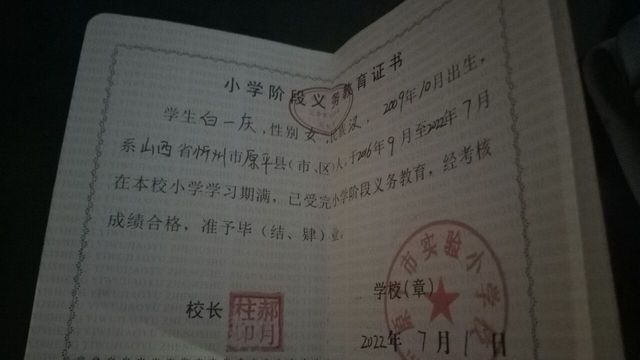 小学阶段义务教育证书
学生白一庆,性别女,民族汉,2009年10月出生,
系山西省忻州市原平县(市、区)人,于2016年9月至2022年7月
在本校小学学习期满,已受完小学阶段义务教育,经考核
成绩合格,准予毕(结、肄)业。
校长
郝月柱印
学校(章)
市实验小学校
2022年7月1日